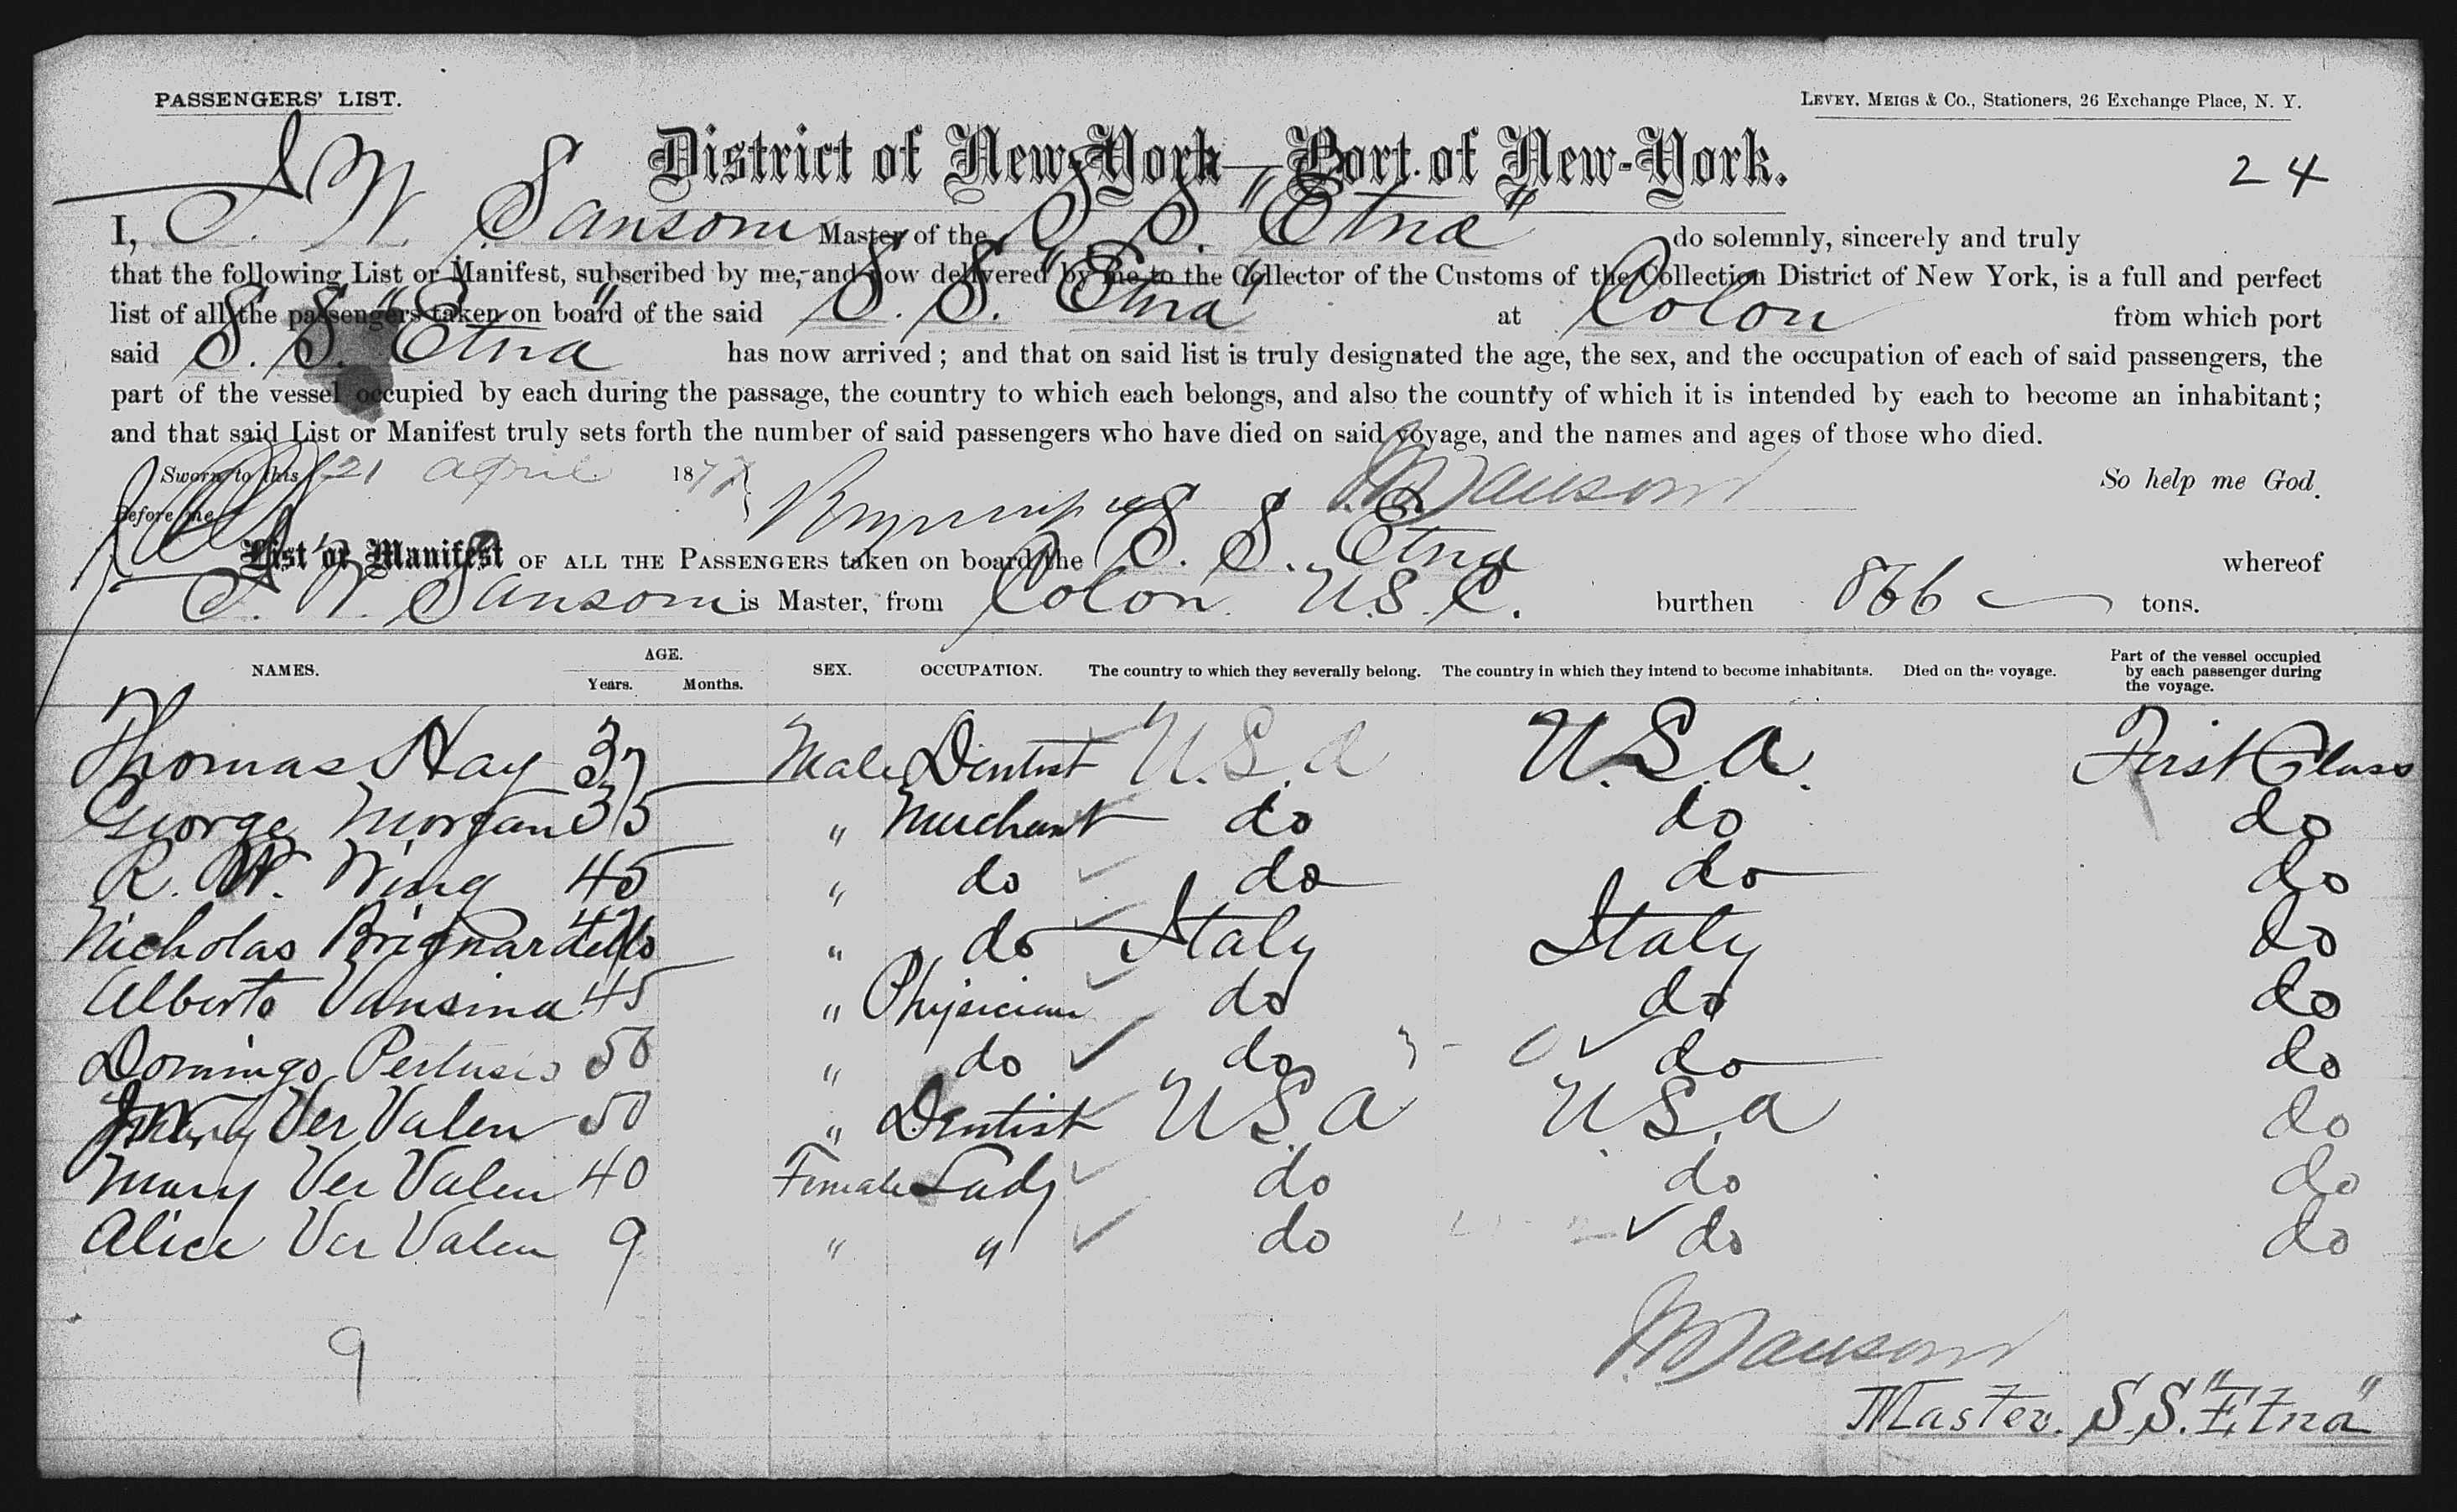 PASSENGERS' LIST.
LEVEY, MEIGS & CO., Stationers, 26 Exchange Place, N. Y.
District of New-York—Port of New-York.
24
I, J. W. Sansom Master of the S. S. "Etna" do solemnly, sincerely and truly
that the following List or Manifest, subscribed by me, and now delivered by me to the Collector of the Customs of the Collection District of New York, is a full and perfect
list of all the passengers taken on board of the said S. S. "Etna" at Colon from which port
said S. S. "Etna" has now arrived; and that on said list is truly designated the age, the sex, and the occupation of each of said passengers, the
part of the vessel occupied by each during the passage, the country to which each belongs, and also the country of which it is intended by each to become an inhabitant;
and that said List or Manifest truly sets forth the number of said passengers who have died on said voyage, and the names and ages of those who died.
Sworn to this 21 April 1877 J W Sansom So help me God.
Before me
List or Manifest OF ALL THE PASSENGERS taken on board the S. S. Etna whereof
J. W. Sansom is Master, from Colon. U.S.C. burthen 866 tons.
NAMES. AGE. Years. Months. SEX. OCCUPATION. The country to which they severally belong. The country in which they intend to become inhabitants. Died on the voyage. Part of the vessel occupied by each passenger during the voyage.
Thomas Hay 37 Male Dentist U.S.A U.S.A. First Class
George Morgan 35 " Merchant do do do
R. W. Wing 45 " do do do do
Nicholas Brignardello 47 " do Italy Italy do
Alberto Vansina 45 " Physician do do do
Domingo Pertusio 50 " do do do do
Ver Valen 50 " Dentist U S. A U.S.A do
Mary Ver Valen 40 Female Lady do do do
Alice Ver Valen 9 " " do do do
9
J W Sansom
Master. S.S. "Etna"